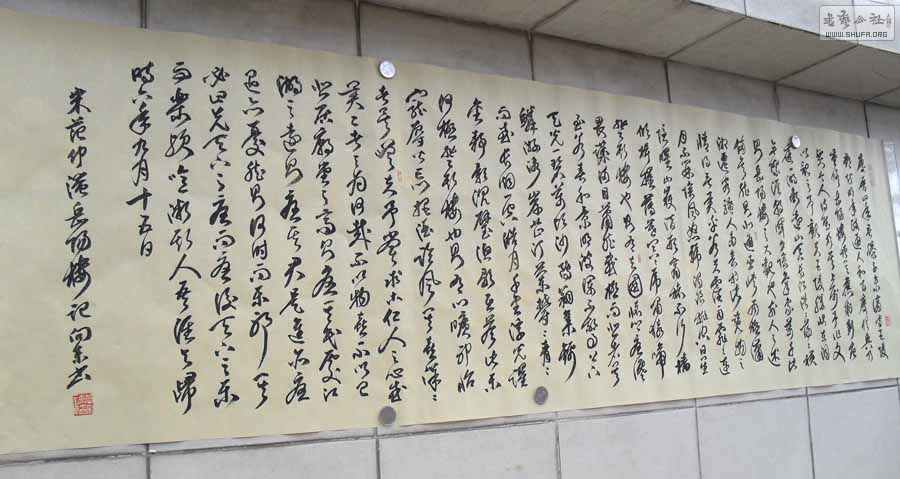 慶曆四年春滕子京謫守巴陵
郡越明年政通人和百廢俱興乃
重修岳陽樓增其舊制刻唐
賢今人詩賦於其上屬予作文
以記之予觀夫巴陵勝狀在洞
庭一湖銜遠山吞長江浩浩湯湯橫
無際涯朝暉夕陰氣象萬千此
則岳陽樓之大觀也前人之述
備矣然則北通巫峽南極瀟
湘遷客騷人多會於此覽物之
情得無異乎若夫霪雨霏霏連
月不開陰風怒號濁浪排空日星
隱曜山岳潛形商旅不行檣
傾楫摧薄暮冥冥虎嘯猿啼
登斯樓也則有去國懷鄉憂讒
畏譏滿目蕭然感極而悲者矣
至若春和景明波瀾不驚上下
天光一碧萬頃沙鷗翔集錦
鱗游泳岸芷汀蘭郁郁青々
而或長煙一空皓月千里浮光躍
金靜影沉璧漁歌互答此樂
何極登斯樓也則有心曠神怡
寵辱皆忘把酒臨風其喜洋々
者矣嗟夫予嘗求古仁人之心或
異二者之為何哉不以物喜不以己
悲居廟堂之高則憂其民處江
湖之遠則憂其君是進亦憂
退亦憂然則何時而樂耶其
必曰先天下之憂而憂後天下之樂
而樂歟噫微斯人吾誰與歸
時六年九月十五日
宋范仲淹岳陽樓記
WWW.SHUFA.ORG